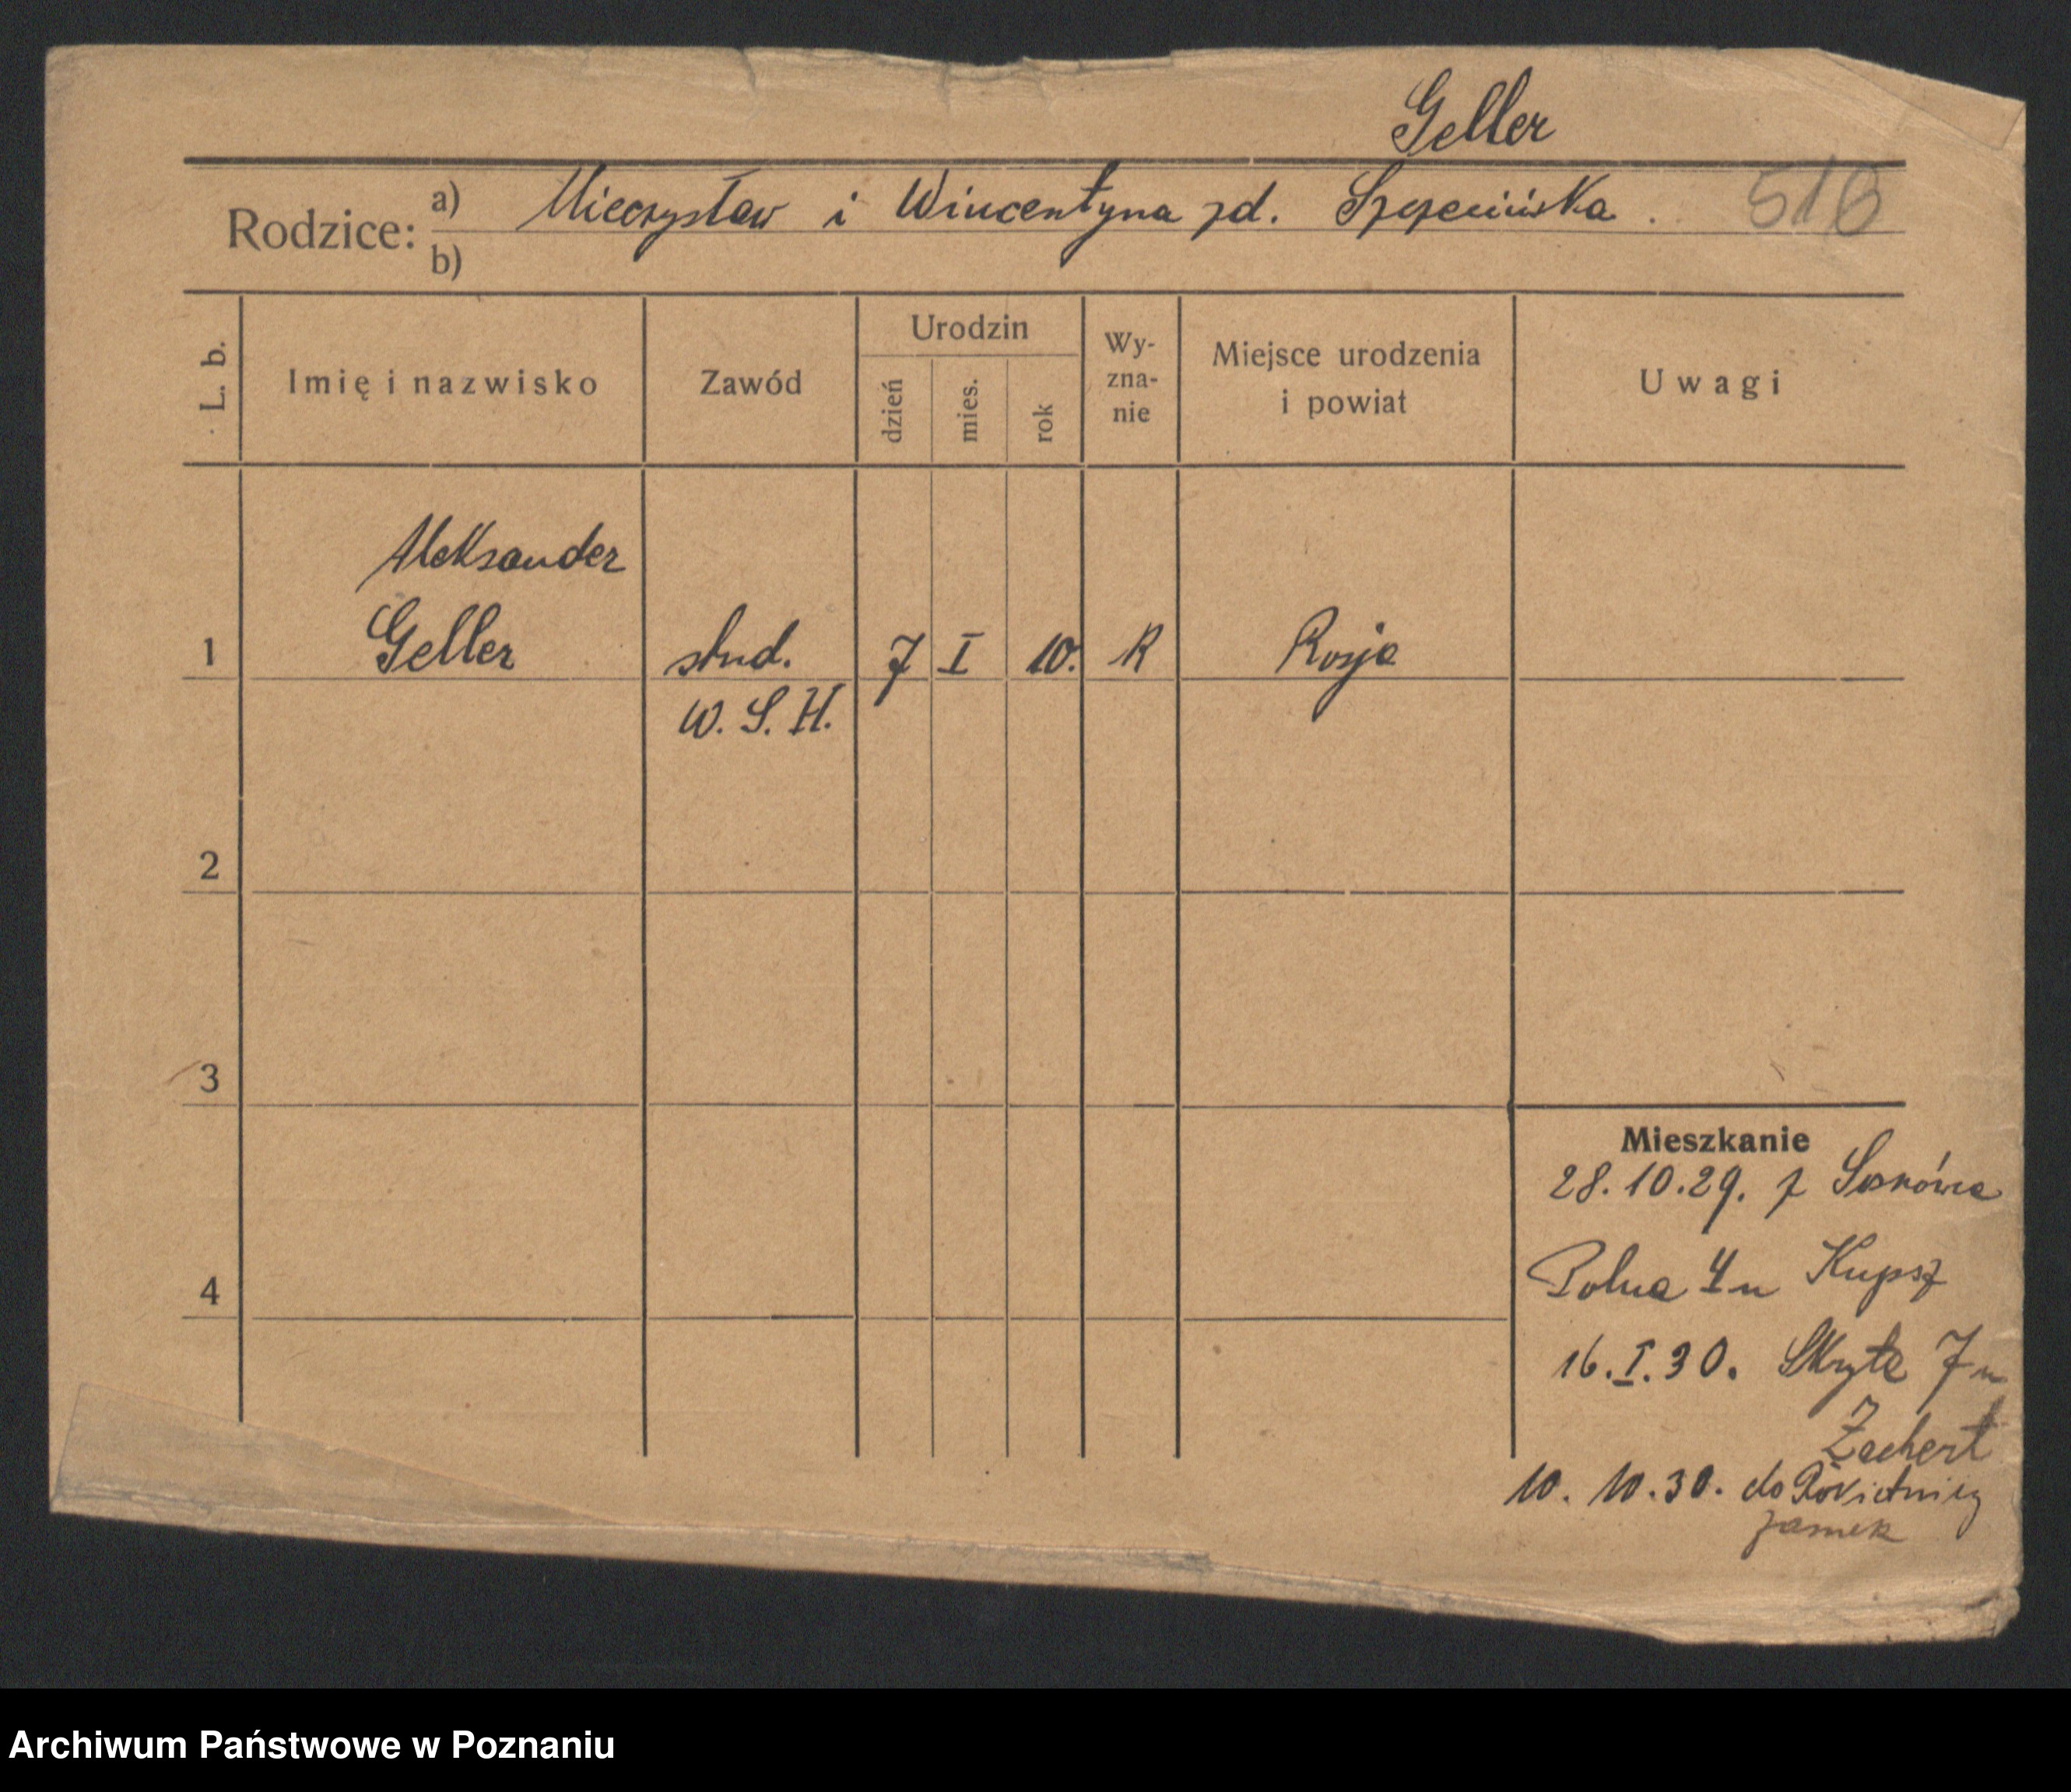 Geller
Rodzice: a) Mieczysław i Wincentyna zd. Szczecińska. 518
b)
L. b.
Imię i nazwisko
Zawód
Urodzin
dzień
mies.
rok
Wy-
zna-
nie
Miejsce urodzenia
i powiat
Uwagi
Aleksander
1 Geller stud. 7 I 10. R Rosja
W. S. H.
2
3
4
Mieszkanie
28.10.29. z
Polna 4 u Kupsz
16.I.30. Skryta 7 u
Zachert
10. 10.30. do Rokietnicy
zamek
Archiwum Państwowe w Poznaniu